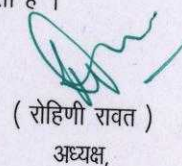 ( रोहिणी रावत )
अध्यक्ष,